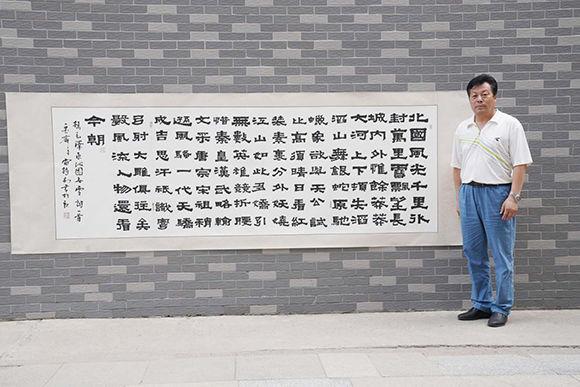 北國風光千里冰
封萬里雪飄望長
城内外惟餘莽莽
大河上下頓失滔
滔山舞銀蛇原馳
蠟象欲與天公試
比高須晴日看紅
裝素裹分外妖嬈
江山如此多嬌引
無數英雄競折腰
惜秦皇漢武略輸
文采唐宗宋祖稍
遜風騷一代天驕
成吉思汗祇識彎
弓射大雕俱往矣
數風流人物還看
今朝
毛澤東沁園春雪詞